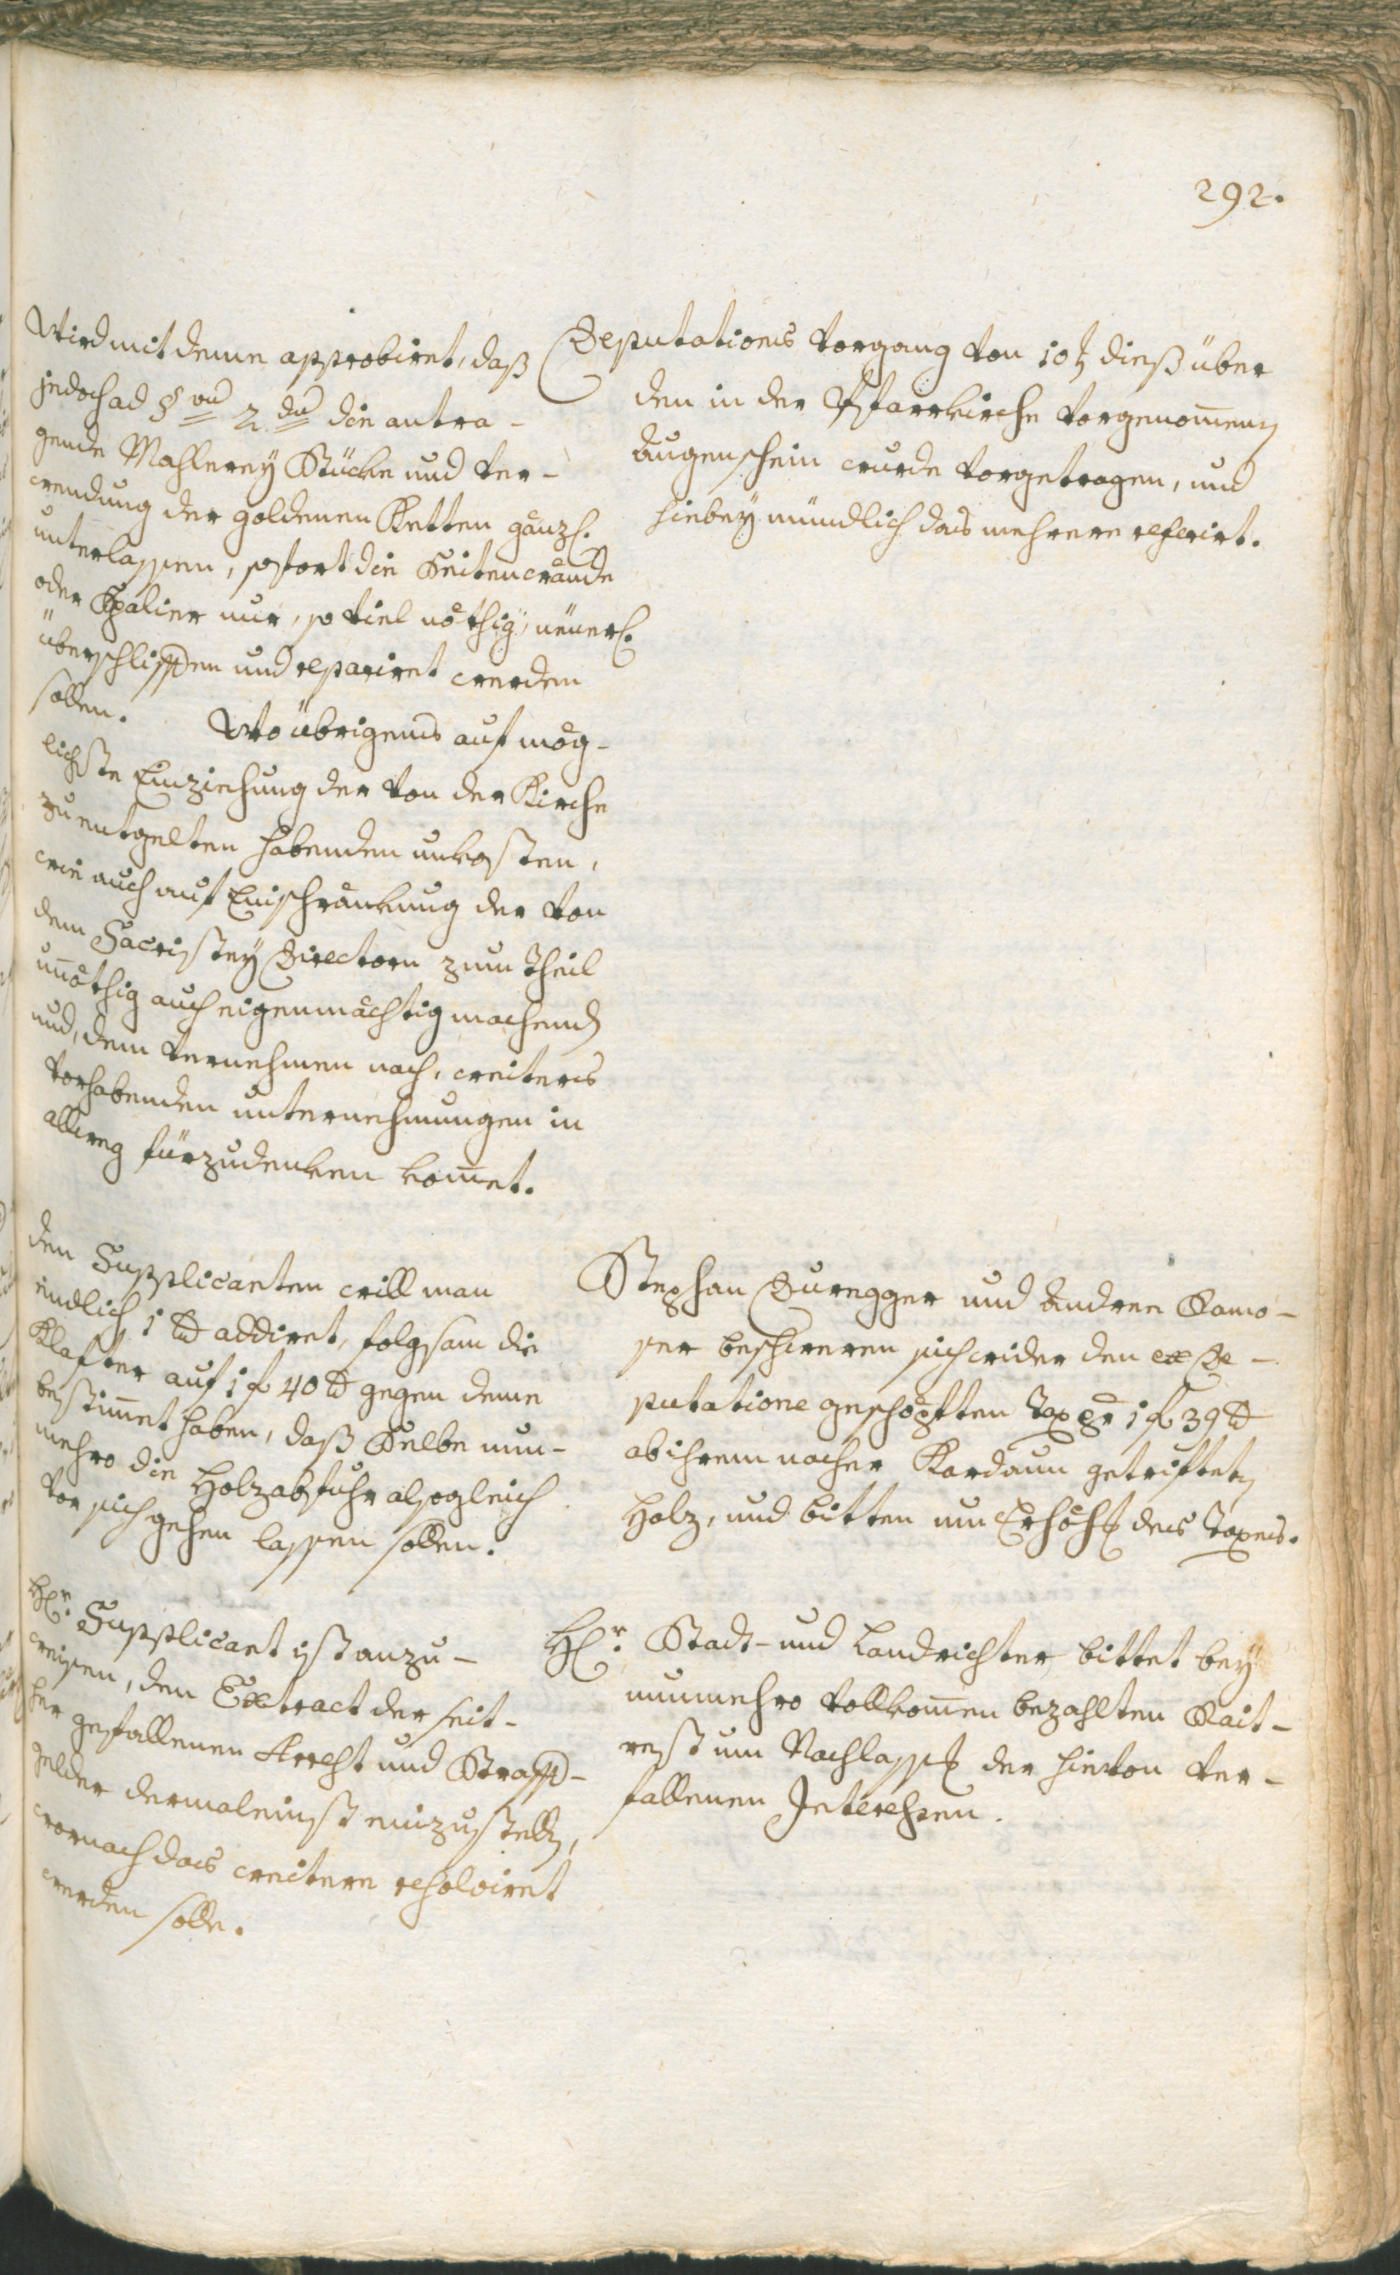 292.
Wird mit deme approbiret, daß
jedoch ad §vum 2.dum die antra-
gende Mahlerey Stücke und ver-
wendung der goldenen Ketten gänzl.
unterlassen, sofort die Seitenwände
oder Spalier nur, so viel nöthig, neüerl.
überschlissen und repariret werden
sollen. Wo übrigens auf mög-
lichste Einziehung der von der Kirche
zu entgelten habenden unkosten,
wie auch auf Einschränkung der von
dem Sacristey Directorn zum Theil
unöthig auch eigenmächtig machend
und, dem vernehmen nach, weiters
vorhabenden unternehmungen in
allweg fürzudenken komet.
Deputations vorgang von 10t dieß über
den in der Pfarrkirche vorgenomenen
augenschein wurde vorgetragen, und
hiebey mündlich das mehrere referirt.
den Supplicanten will man
endlich 1 d addiret, folgsam die
Klafter auf 1 f 40 d gegen deme
bestimet haben, daß Selbe nun-
mehro die Holzabfuhr alsogleich
vor sich gehen lassen sollen.
Stephan Duregger und Andree Samo-
ser beschweren sich wider den ex De-
putatione geschöpften Tax pr 1 f 39 d
ab ihrem nacher Kardaun getrifteten
Holz, und bitten um Erhöhg des Taxes.
Hr. Supplicant ist anzu-
weisen, den Extract der seit-
her gefallenen Arrest und Straff-
gelder dermaleinst einzustellen,
wornach das weitere resolviret
werden solle.
Hr. Stadt- und Landrichter bittet bey
nunmehro vollkomen bezahlten Rait-
rest um Nachlassg der hievon ver-
fallenen Interessen.